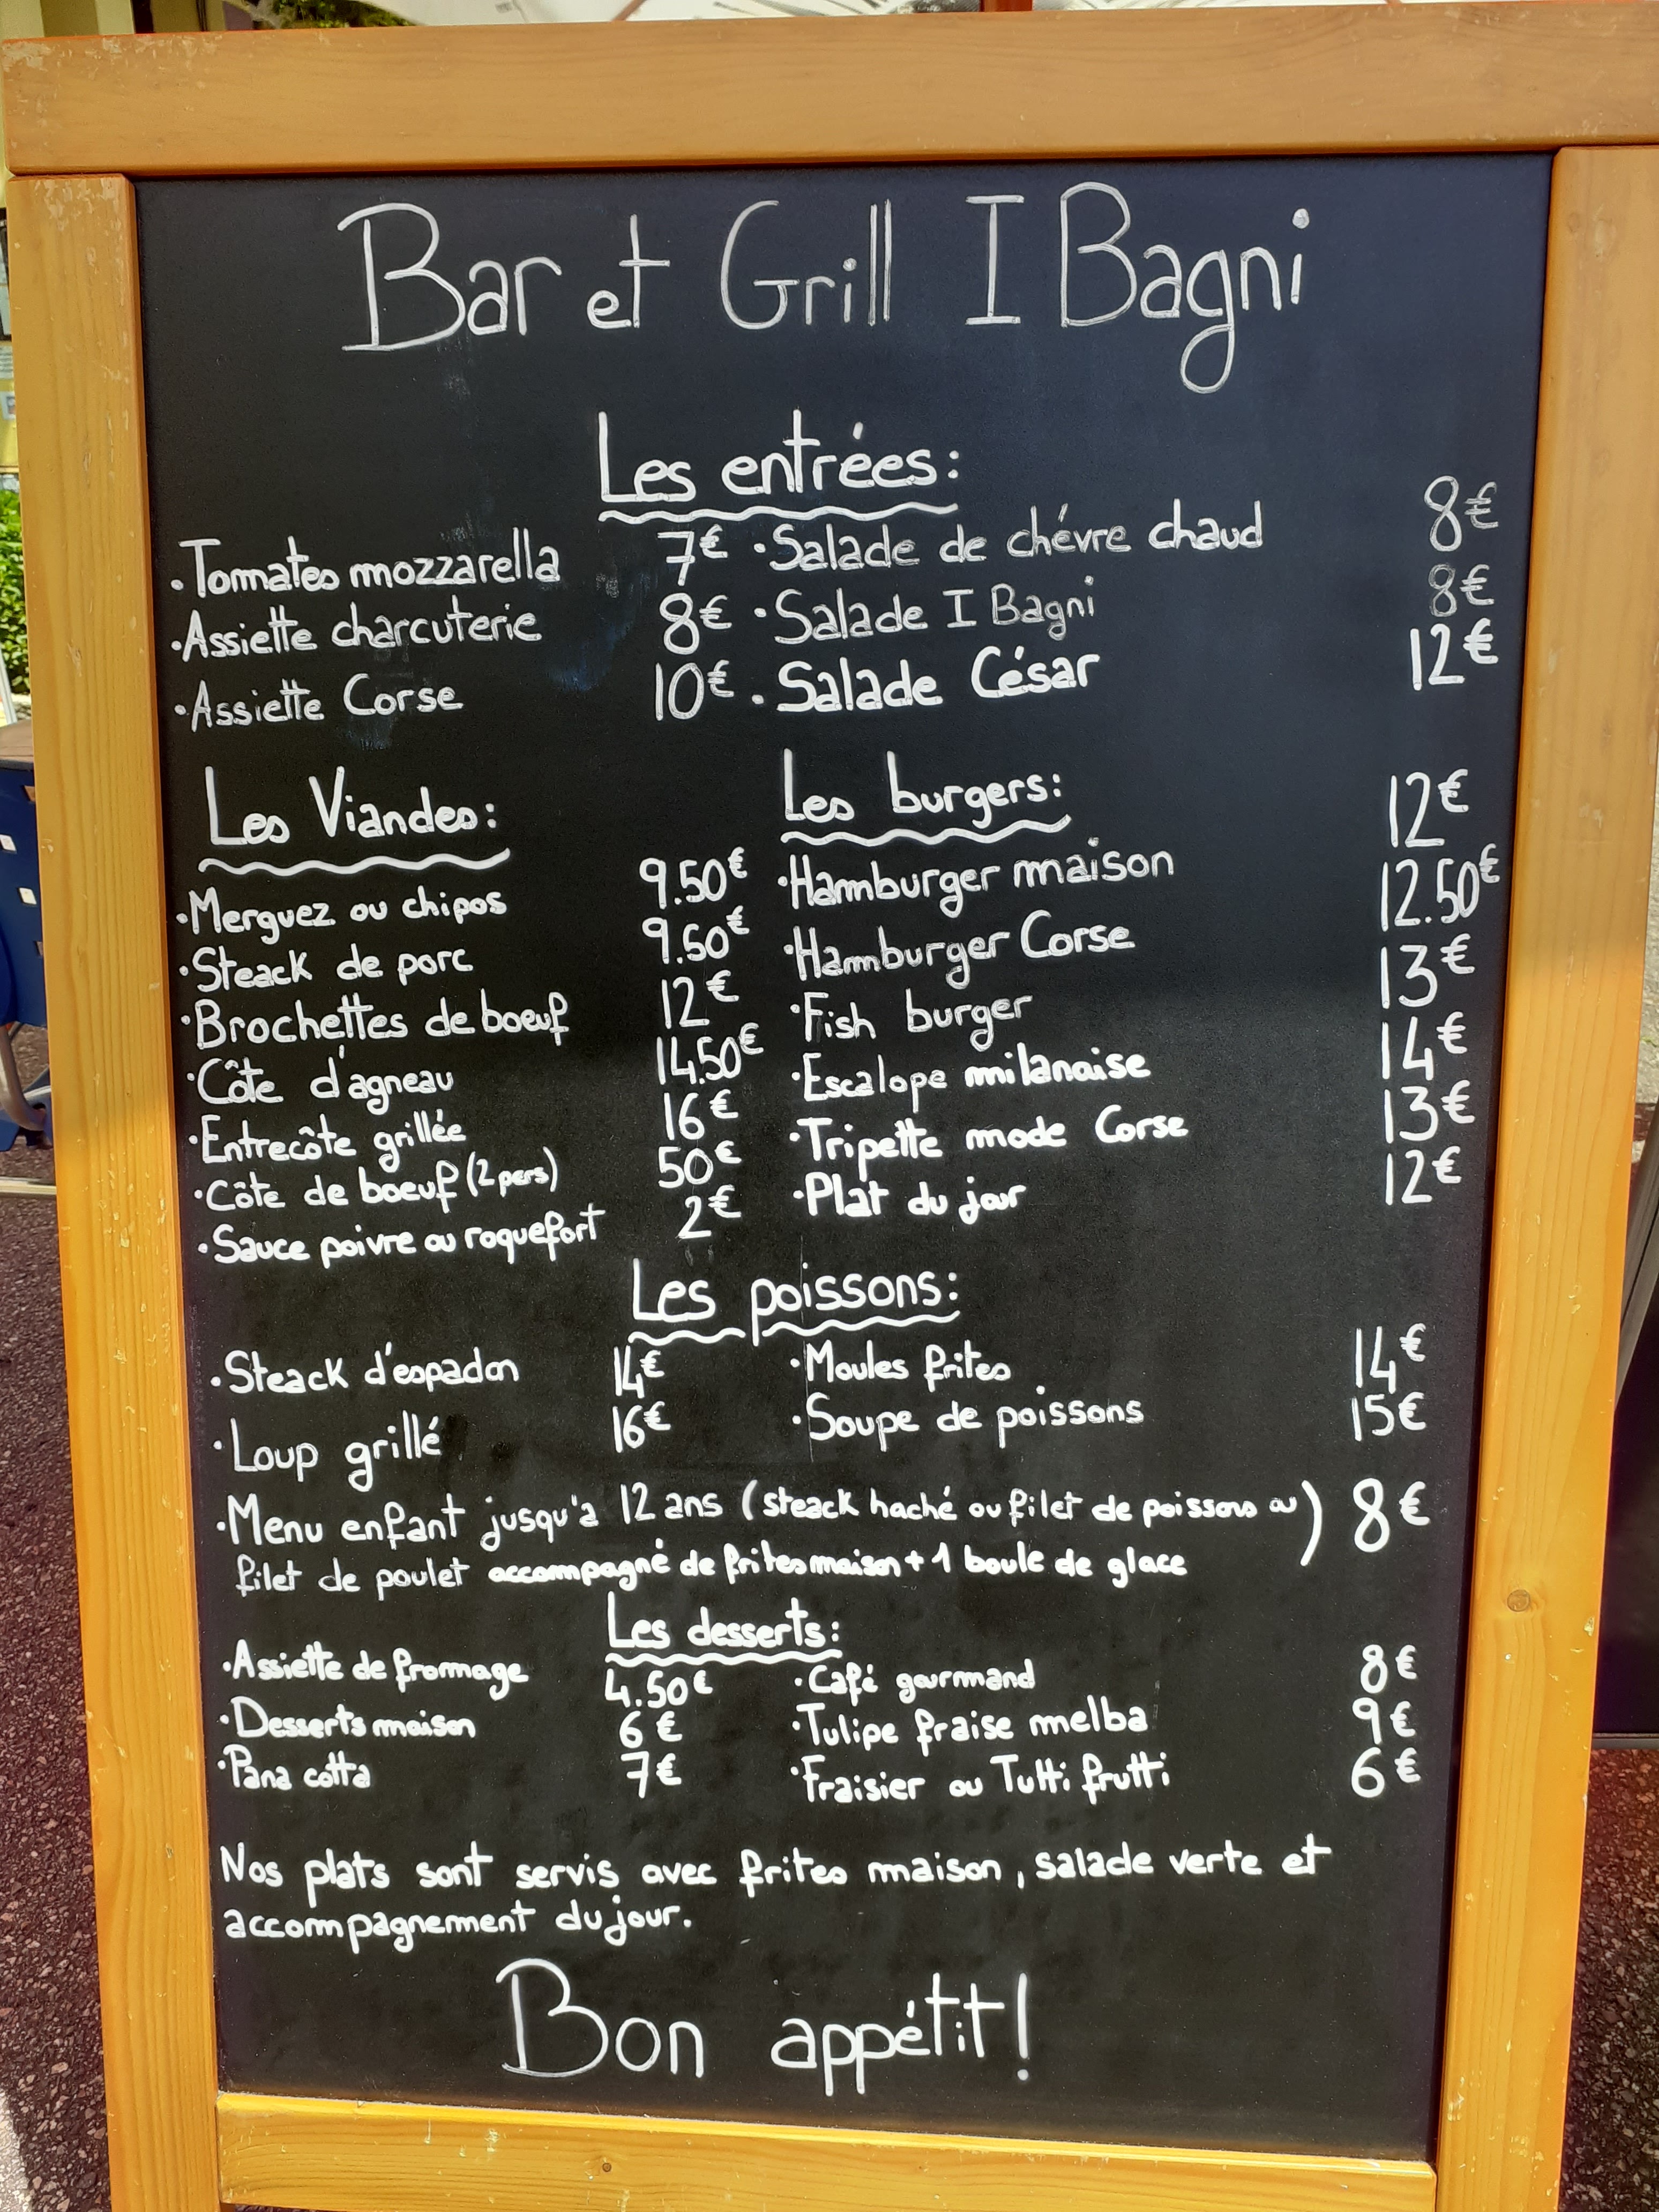 Bar et Grill I Bagni
Les entrées:
·Tomates mozzarella 7€
·Assiette charcuterie 8€
·Assiette Corse 10€
·Salade de chévre chaud 8€
·Salade I Bagni 8€
·Salade César 12€
Les Viandes:
·Merguez ou chipos 9.50€
·Steack de porc 9.50€
·Brochettes de boeuf 12€
·Côte d'agneau 14.50€
·Entrecôte grillée 16€
·Côte de boeuf (2 pers) 50€
·Sauce poivre ou roquefort 2€
Les burgers:
·Hamburger maison 12€
·Hamburger Corse 12.50€
·Fish burger 13€
·Escalope milanaise 14€
·Tripette mode Corse 13€
·Plat du jour 12€
Les poissons:
·Steack d'espadon 14€
·Loup grillé 16€
·Moules frites 14€
·Soupe de poissons 15€
·Menu enfant jusqu'a 12 ans (steack haché ou filet de poissons ou) 8€
filet de poulet accompagné de frites maison + 1 boule de glace
Les desserts:
·Assiette de frommage 4.50€
·Desserts maison 6€
·Pana cotta 7€
·Café gourmand 8€
·Tulipe fraise melba 9€
·Fraisier ou Tutti frutti 6€
Nos plats sont servis avec frites maison, salade verte et
accompagnement du jour.
Bon appétit!